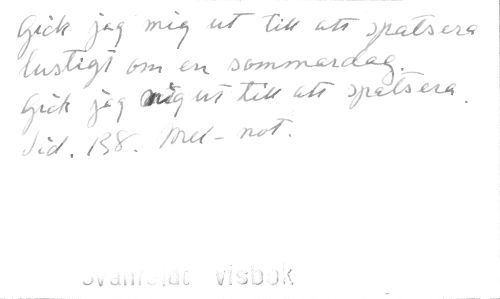 Gick jag mig ut till att spatsera
lustigt om en sommardag.
Gick jag mig ut till att spatsera.
Sid. 138. Mel-not.
visbok